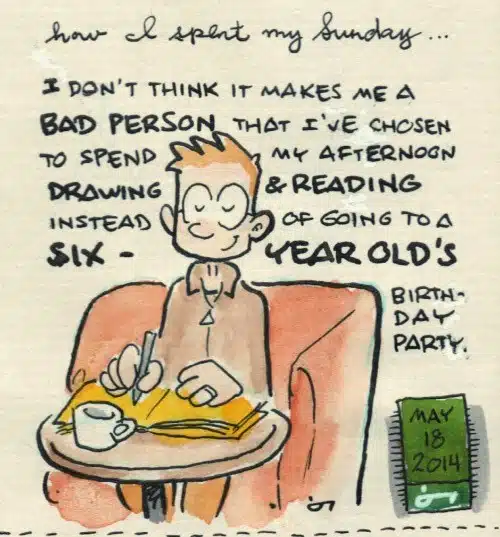 how I spent my Sunday...
I DON'T THINK IT MAKES ME A
BAD PERSON THAT I'VE CHOSEN
TO SPEND MY AFTERNOON
DRAWING & READING
INSTEAD OF GOING TO A
SIX - YEAR OLD'S
BIRTH-
DAY
PARTY.
MAY
18
2014